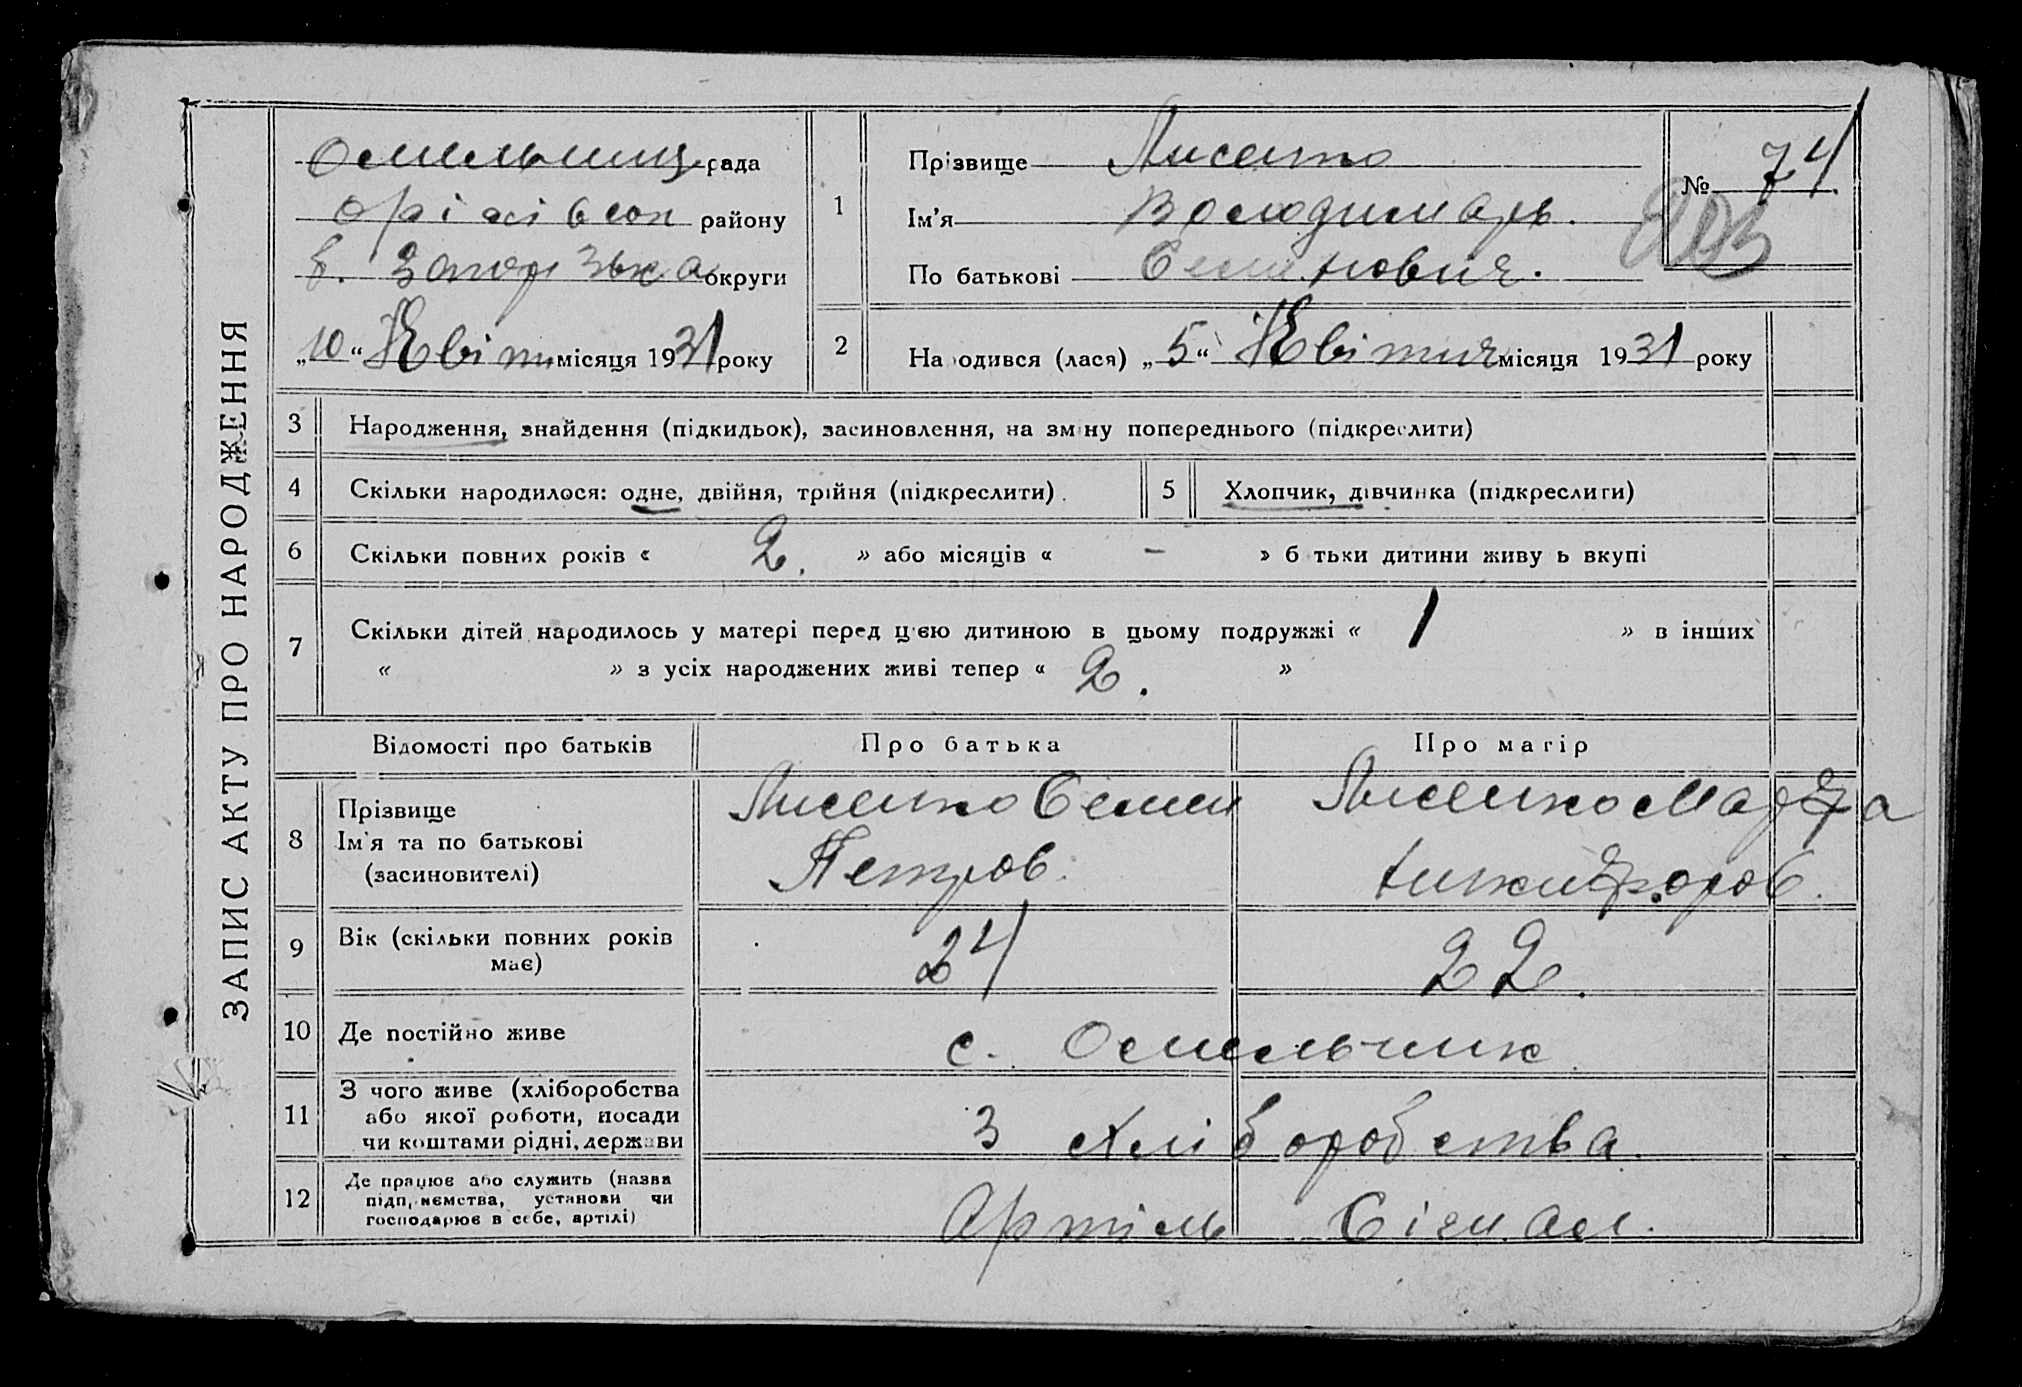 ЗАПИС АКТУ ПРО НАРОДЖЕННЯ
Омельниц рада
Оріхівськ району
б. Запорізька округи
„10“ Квітн місяця 1931 року
1
Прізвище Лисенко
Ім'я Володимарь.
По батькові Семенович.
№ 74
2
Народився (лася) „5“ Квітня місяця 1931 року
3 Народження, знайдення (підкидьок), засиновлення, на зміну попереднього (підкреслити)
4 Скільки народилося: одне, двійня, трійня (підкреслити).
5 Хлопчик, дівчинка (підкреслити)
6 Скільки повних років « 2. » або місяців « - » батьки дитини живуть вкупі
7 Скільки дітей народилось у матері перед цією дитиною в цьому подружжі « 1 » в інших
« » з усіх народжених живі тепер « 2. »
Відомості про батьків Про батька Про матір
8
Прізвище
Ім'я та по батькові
(засиновителі)
Лисенко Семен
Петров.
Лисенко Марфа
Никифоров.
9
Вік (скільки повних років
має)
24
22.
10 Де постійно живе с. Омельник
11
З чого живе (хліборобства
або якої роботи, посади
чи коштами рідні, держави
З хліборобства.
12
Де працює або служить (назва
підприємства, установи чи
господарює в себе, артілі)
Артіль Сігнал.